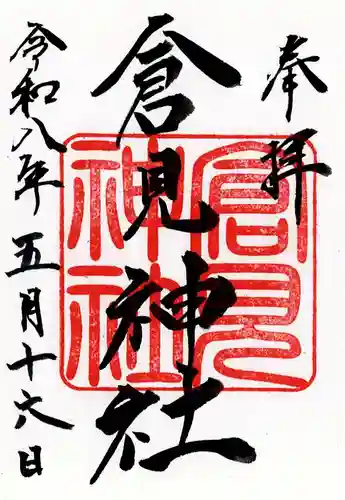 奉拝
倉見神社
倉見神社
令和八年五月十六日